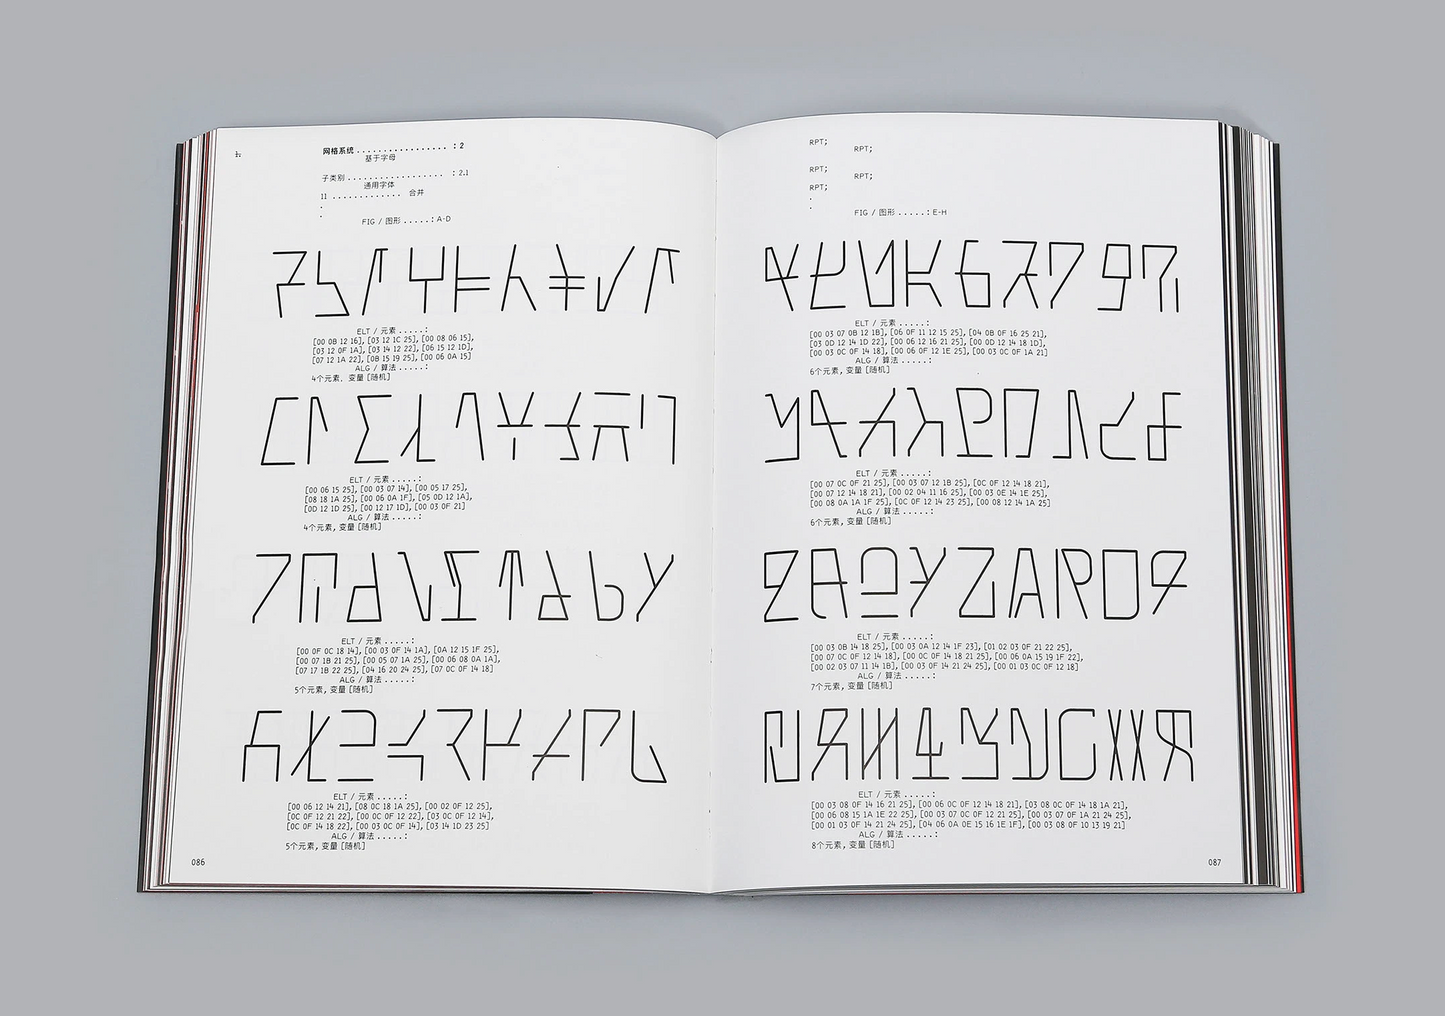 网格系统 ................. : 2
基于字母
子类别 ................... : 2.1
通用字体
11 ............. 合并
.
.
FIG / 图形 .....: A-D
ELT / 元素 .....:
[00 0B 12 16], [03 12 1C 25], [00 08 06 15],
[03 12 0F 1A], [03 14 12 22], [06 15 12 1D],
[07 12 1A 22], [0B 15 19 25], [00 06 0A 15]
ALG / 算法 .....:
4个元素, 变量 [随机]
ELT / 元素 .....:
[00 06 15 25], [00 03 07 14], [00 05 17 25],
[08 18 1A 25], [00 06 0A 1F], [05 0D 12 1A],
[0D 12 1D 25], [00 12 17 1D], [00 03 0F 21]
ALG / 算法 .....:
4个元素, 变量 [随机]
ELT / 元素 .....:
[00 0F 0C 18 14], [00 03 0F 14 1A], [0A 12 15 1F 25],
[00 07 1B 21 25], [00 05 07 1A 25], [00 06 08 0A 1A],
[07 17 1B 22 25], [04 16 20 24 25], [07 0C 0F 14 18]
ALG / 算法 .....:
5个元素, 变量 [随机]
ELT / 元素 .....:
[00 06 12 14 21], [08 0C 18 1A 25], [00 02 0F 12 25],
[0C 0F 12 21 22], [00 0C 0F 12 22], [03 0C 0F 12 14],
[0C 0F 14 18 22], [00 03 0C 0F 14], [03 14 1D 23 25]
ALG / 算法 .....:
5个元素, 变量 [随机]
086
RPT;
RPT;
RPT;
RPT;
RPT;
.
.
FIG / 图形 .....: E-H
ELT / 元素 .....:
[00 03 07 0B 12 1B], [06 0F 11 12 15 25], [04 0B 0F 16 25 21],
[03 0D 12 14 1D 22], [00 06 12 16 21 25], [00 0D 12 14 18 1D],
[00 03 0C 0F 14 18], [00 06 0F 12 1E 25], [00 03 0C 0F 1A 21]
ALG / 算法 .....:
6个元素, 变量 [随机]
ELT / 元素 .....:
[00 07 0C 0F 21 25], [00 03 07 12 1B 25], [0C 0F 12 14 18 21],
[00 07 12 14 18 21], [00 02 04 11 16 25], [00 03 0E 14 1E 25],
[00 08 0A 1A 1F 25], [0C 0F 12 14 23 25], [00 08 12 14 1A 25]
ALG / 算法 .....:
6个元素, 变量 [随机]
ELT / 元素 .....:
[00 03 0B 14 18 25], [00 03 0A 12 14 1F 23], [01 02 03 0F 21 22 25],
[00 07 0C 0F 12 14 18], [00 0C 0F 14 18 21 25], [00 06 0A 15 19 1F 22],
[00 02 03 07 11 14 1B], [00 03 0F 14 21 24 25], [00 01 03 0C 0F 12 18]
ALG / 算法 .....:
7个元素, 变量 [随机]
ELT / 元素 .....:
[00 03 08 0F 14 16 21 25], [00 06 0C 0F 12 14 18 21], [03 08 0C 0F 14 18 1A 21],
[00 06 08 15 1A 1E 22 25], [00 03 07 0C 0F 12 21 25], [00 03 07 0F 1A 21 24 25],
[00 01 03 0F 14 21 24 25], [04 06 0A 0E 15 16 1E 1F], [00 03 08 0F 10 13 19 21]
ALG / 算法 .....:
8个元素, 变量 [随机]
087